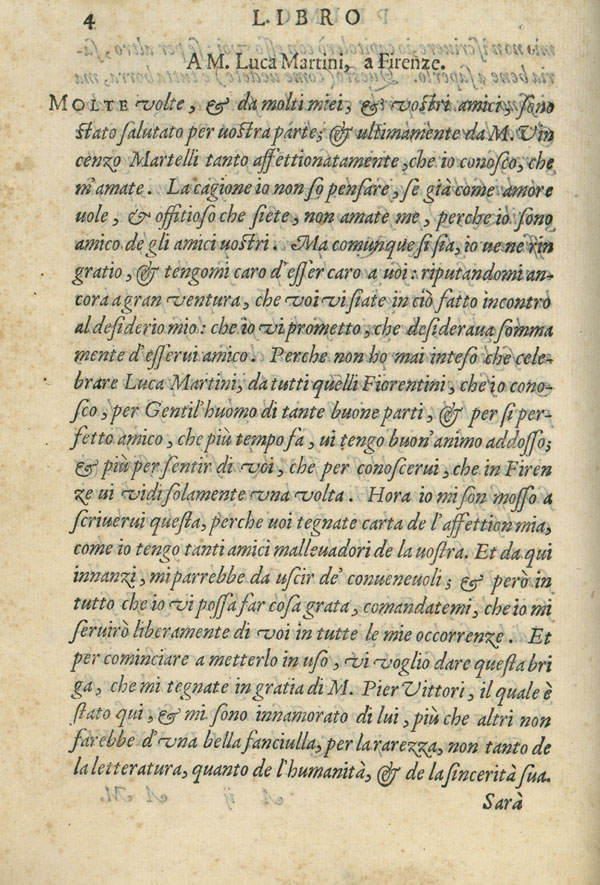 4 LIBRO
A M. Luca Martini, a Firenze.
MOLTE volte, & da molti miei, & vostri amici, sono
stato salutato per uostra parte; & ultimamente da M. Vin
cenzo Martelli tanto affettionatamente, che io conosco, che
m'amate. La cagione io non so pensare, se già come amore
uole, & offitioso che siete, non amate me, perche io sono
amico de gli amici uostri. Ma comunque si sia, io ue ne rin
gratio, & tengomi caro d'esser caro a uoi: riputandomi an-
cora a gran ventura, che voi vi siate in ciò fatto incontro
al desiderio mio: che io vi prometto, che desideraua somma
mente d'esserui amico. Perche non ho mai inteso che cele-
brare Luca Martini, da tutti quelli Fiorentini, che io cono-
sco, per Gentil'huomo di tante buone parti, & per si per-
fetto amico, che più tempo fa, ui tengo buon'animo addosso;
& più per sentir di voi, che per conoscerui, che in Firen
ze ui vidi solamente vna volta. Hora io mi son mosso a
scriuerui questa, perche uoi tegnate carta de l'affettion mia,
come io tengo tanti amici malleuadori de la uostra. Et da qui
innanzi, mi parrebbe da uscir de' conueneuoli; & però in
tutto che io vi possa far cosa grata, comandatemi, che io mi
seruirò liberamente di voi in tutte le mie occorrenze. Et
per cominciare a metterlo in uso, vi voglio dare questa bri
ga, che mi tegnate in gratia di M. Pier Vittori, il quale è
stato qui, & mi sono innamorato di lui, più che altri non
farebbe d'vna bella fanciulla, per la rarezza, non tanto de
la letteratura, quanto de l'humanità, & de la sincerità sua.
Sarà